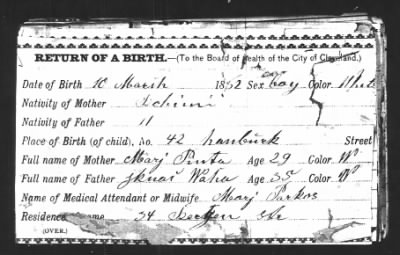 RETURN OF A BIRTH.—(To the Board of Health of the City of Cleveland.)
Date of Birth 10 March 18 2 Sex boy Color White
Nativity of Mother
Nativity of Father 11
Place of Birth (of child), No. 42 hanburk Street
Full name of Mother Mary Pinta Age 29 Color W
Full name of Father Waha Age 35 Color W
Name of Medical Attendant or Midwife Mary Parkos
Residence 34
(OVER.)